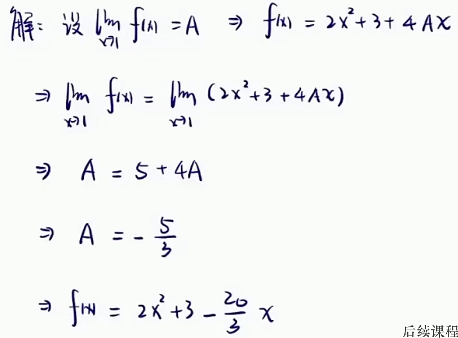 解: 设 lim x→1 f(x) = A ⇒ f(x) = 2x²+3+4Ax
⇒ lim x→1 f(x) = lim x→1 (2x²+3+4Ax)
⇒ A = 5+4A
⇒ A = -5/3
⇒ f(x) = 2x²+3-20/3 x
后续课程